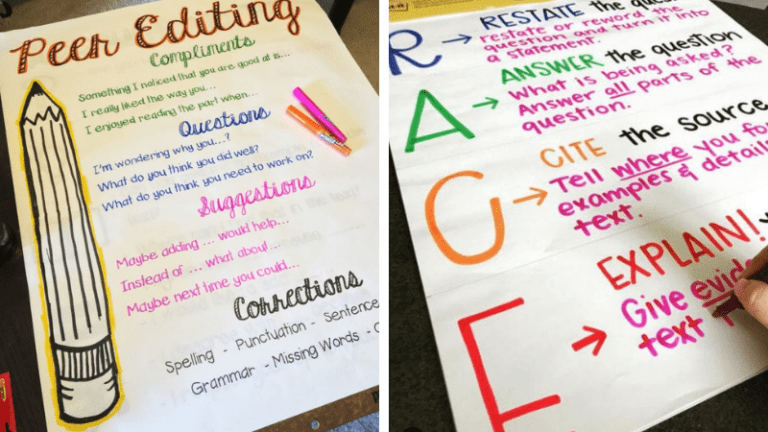 Peer Editing
Compliments
Something I noticed that you are good at is...
I really liked the way you...
I enjoyed reading the part when...
Questions
I'm wondering why you...?
What do you think you did well?
What do you think you need to work on?
Suggestions
Maybe adding ... would help...
Instead of ... what about...
Maybe next time you could...
Corrections
Spelling - Punctuation - Sentence
Grammar - Missing Words -
R → RESTATE the
restate or reword
question and turn it into
a statement.
A → ANSWER the question
What is being asked?
Answer all parts of the
question.
C → CITE the source
Tell where you
examples & details
text.
E → EXPLAIN!
Give
text